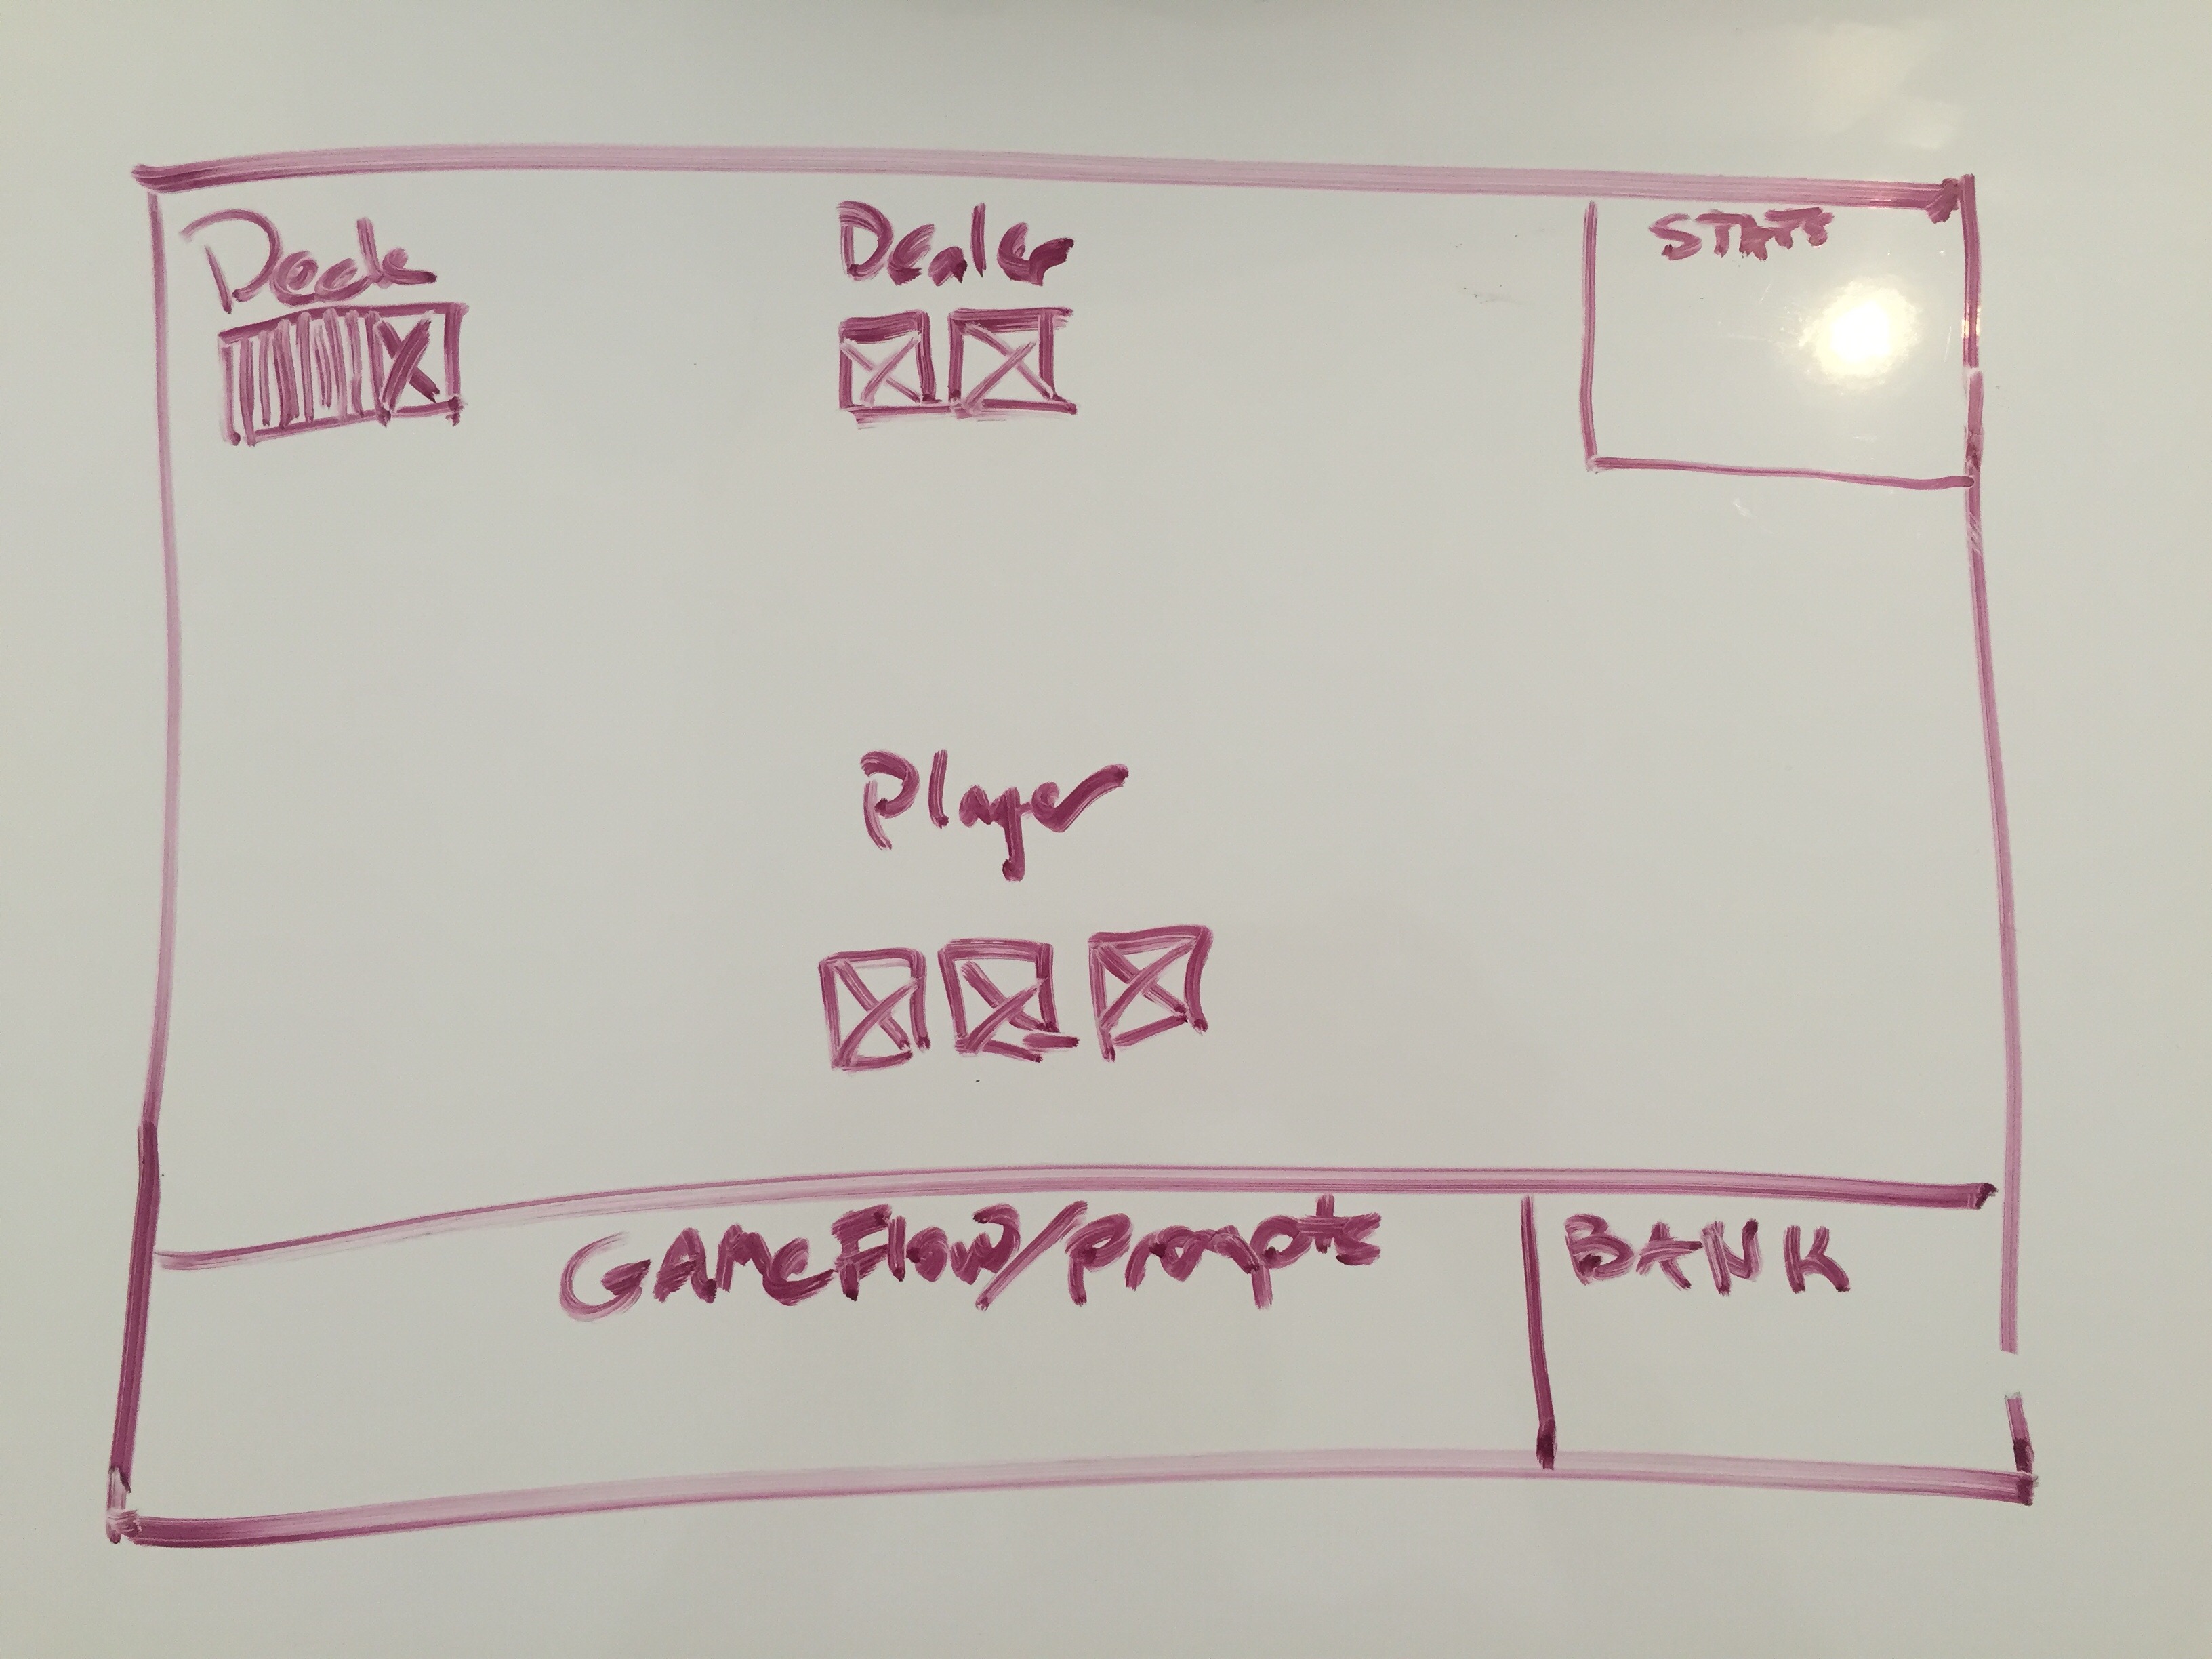 Deck
Dealer
STATS
Player
GAMEFlow/Prompts
BANK